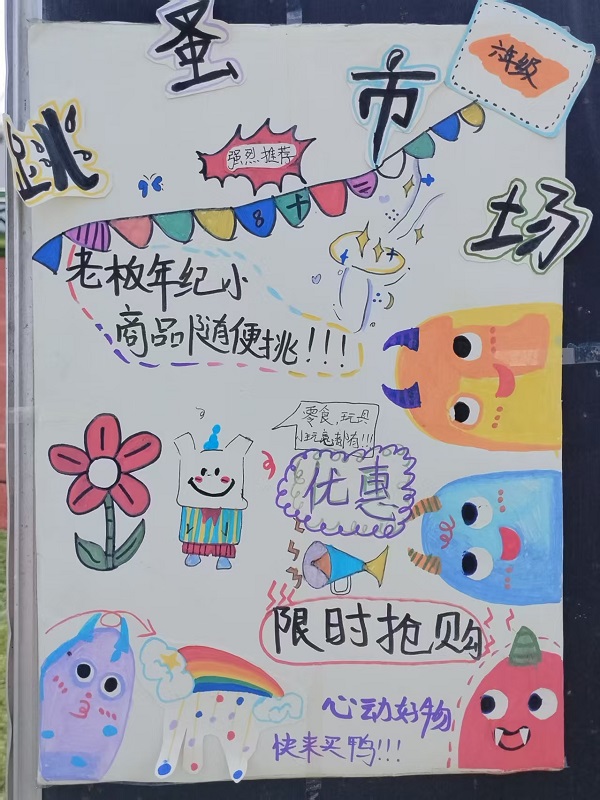 跳蚤市场
六年级
强烈推荐
8十
老板年纪小
商品随便挑!!!
零食,玩具
小玩意都有!!!
优惠
限时抢购
心动好物
快来买鸭!!!